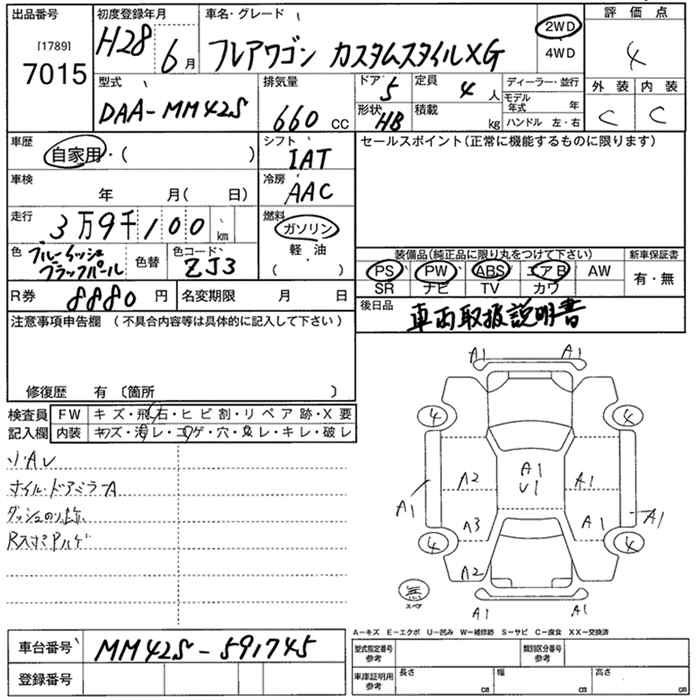 出品番号
[1789]
7015
初度登録年月
H28 6月
車名・グレード
フレアワゴン カスタムスタイルXG
2WD
4WD
評価点
4
外装 内装
C C
型式
DAA-MM42S
排気量
660 CC
ドア 5
形状 HB
定員 4人
積載 kg
ディーラー・並行
モデル年式 年
ハンドル 左・右
車歴
自家用・( )
シフト
IAT
車検
年 月( 日)
冷房
AAC
走行
3万9千100 km
燃料
ガソリン
軽・油
( )
色 ブルーイッシュブラックパール 色替
色コード
ZJ3
R券 8880円
名変期限 月 日
セールスポイント(正常に機能するものに限ります)
装備品(純正品に限り丸をつけて下さい)
新車保証書
PS PW ABS エアB AW
SR ナビ TV カワ
有・無
後日品
車両取扱説明書
注意事項申告欄 (不具合内容等は具体的に記入して下さい)
修復歴 有 〔箇所 〕
検査員記入欄
FW キズ・飛石・ヒビ割・リペア跡・X要
内装 キズ・汚レ・コゲ・穴・スレ・キレ・破レ
小・Aレ
ホイル・ドアミラーA
ダッシュのり跡
A1 A1
4 4
A2 A1 U1 A1
A1 A1
A3 A1
4 4
A2
無
スペア
A1 A1
A-キズ E-エクボ U-凹み W-補修跡 S-サビ C-腐食 XX-交換済
車台番号 MM42S-591745
登録番号
型式指定番号
参考
類別区分番号
参考
車庫証明用
参考
長さ cm
幅 cm
高さ cm